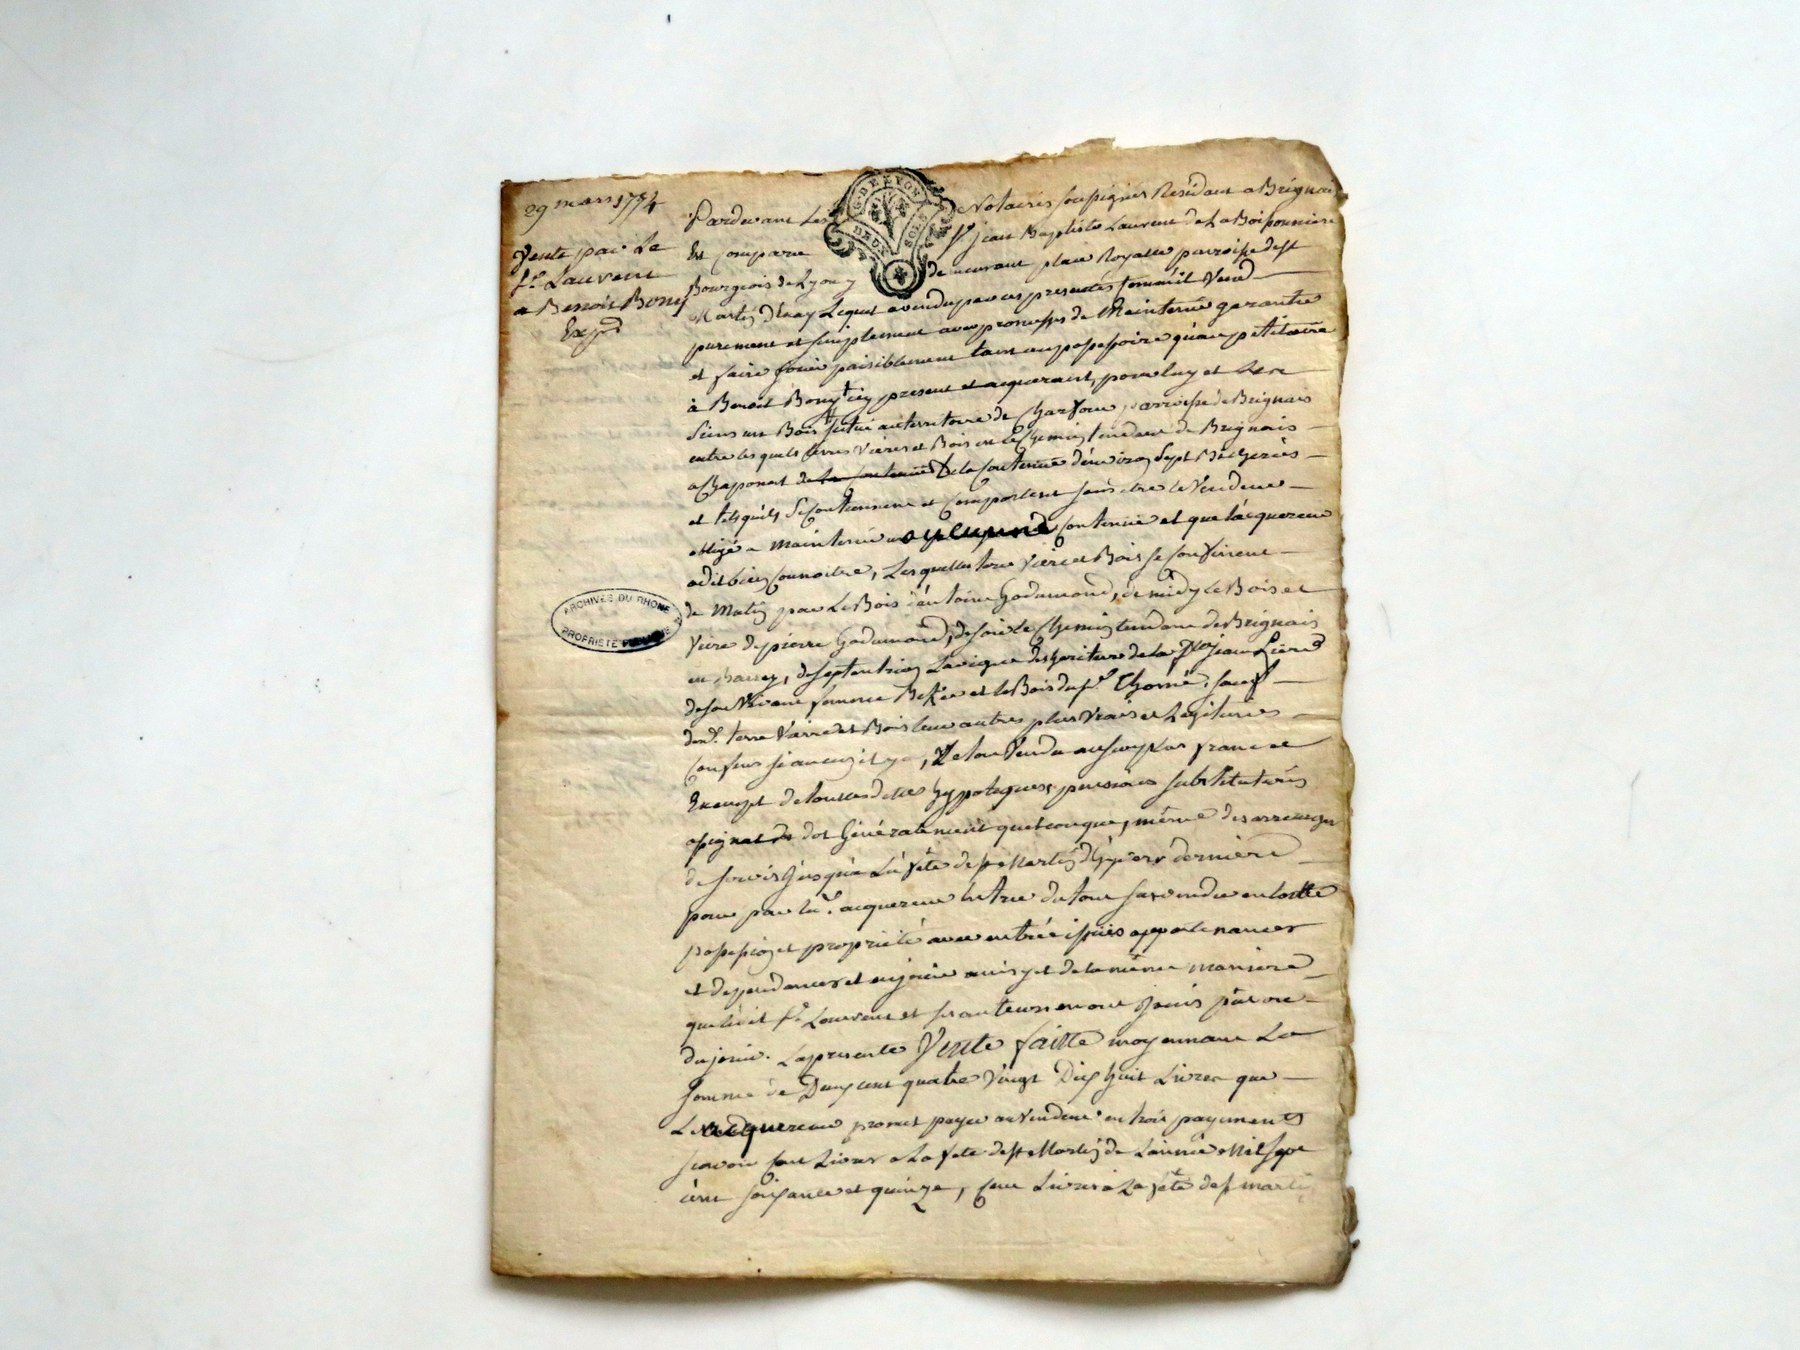 29 mars 1774
Vente par Le
Sr. Laurent
a Benoit Bony
Expd
G. DE LYON
DEUX SOLS
ARCHIVES DU RHONE
PROPRIETE
Pardevant Les Notaires soussignés Residant a Brignais
Est comparu Sr jean Baptiste Laurent de La Boissonniere
Bourgeois de Lyon y demeurant place Royalle parroisse de st
Martin d'Enay Lequel a vendu par ces presentes comme il Vend
purement et simplement avec promesse de Maintenüe garantie
et faire jouir paisiblement tant au possessoire qu'au petitoire
à Benoit Bony icy present et acquerant, pour luy et Les
siens un Bois situé au territoire de parroisse de Brignais
entre lesquels terres Vieres et Bois est Le Chemin tendant de Brignais
a Chaponost de la Contenüe de la Contenüe d'environ Sept Bicherées
et tels qu'ils se Contiennent et Comportent sans etre le Vendeur
obligé a maintenir aucune Contenüe et que l'acquereur
a dit bien Connoitre, Lesquelles terre Viere et Bois se Confinent
de Matin par Le Bois d'antoine Godemond, de midy Le Bois et
Viere de pierre Godemond, de soir le Chemin tendant de Brignais
en, de septentrion La vigne des heritiers de la jean
de son Vivant femme et le Bois du sr Thomé, sauf
desd. terre Vierre et Bois leurs autres plus Vrais et Legitimes
Confins si aucuns il y a, Le tout Vendu au surplus franc et
Exempt de toutes dettes hypoteques, pensions substitutions
assignat de dot Généralement quelconque, même des arrerages
de servis jusqu'à La fête de st Martin d'hyver derniere
pour par led. acquereur du tout en toutte
possession et proprieté avec entrée issües appartenances
et dependances et en jouir ainsy et de la même maniere
que ledit Sr. Laurent et ses auteurs en ont joüis pû ou
du jouir. La presente Vente faitte moyennant La
somme de Deux cent quatre Vingt Dix huit Livres que
L'acquereur promet payer au Vendeur en trois payements
scavoir Cent Livres a La fete de st Martin de L'année Mil sept
cent soixante et quinze, Cent Livres a La fete de st martin